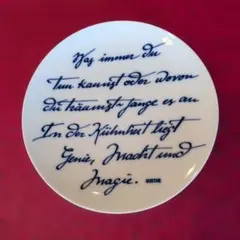 Was immer du
tun kannst oder wovon
du träumst, fange es an
In der Kühnheit liegt
Genie, Macht und
Magie. GOETHE